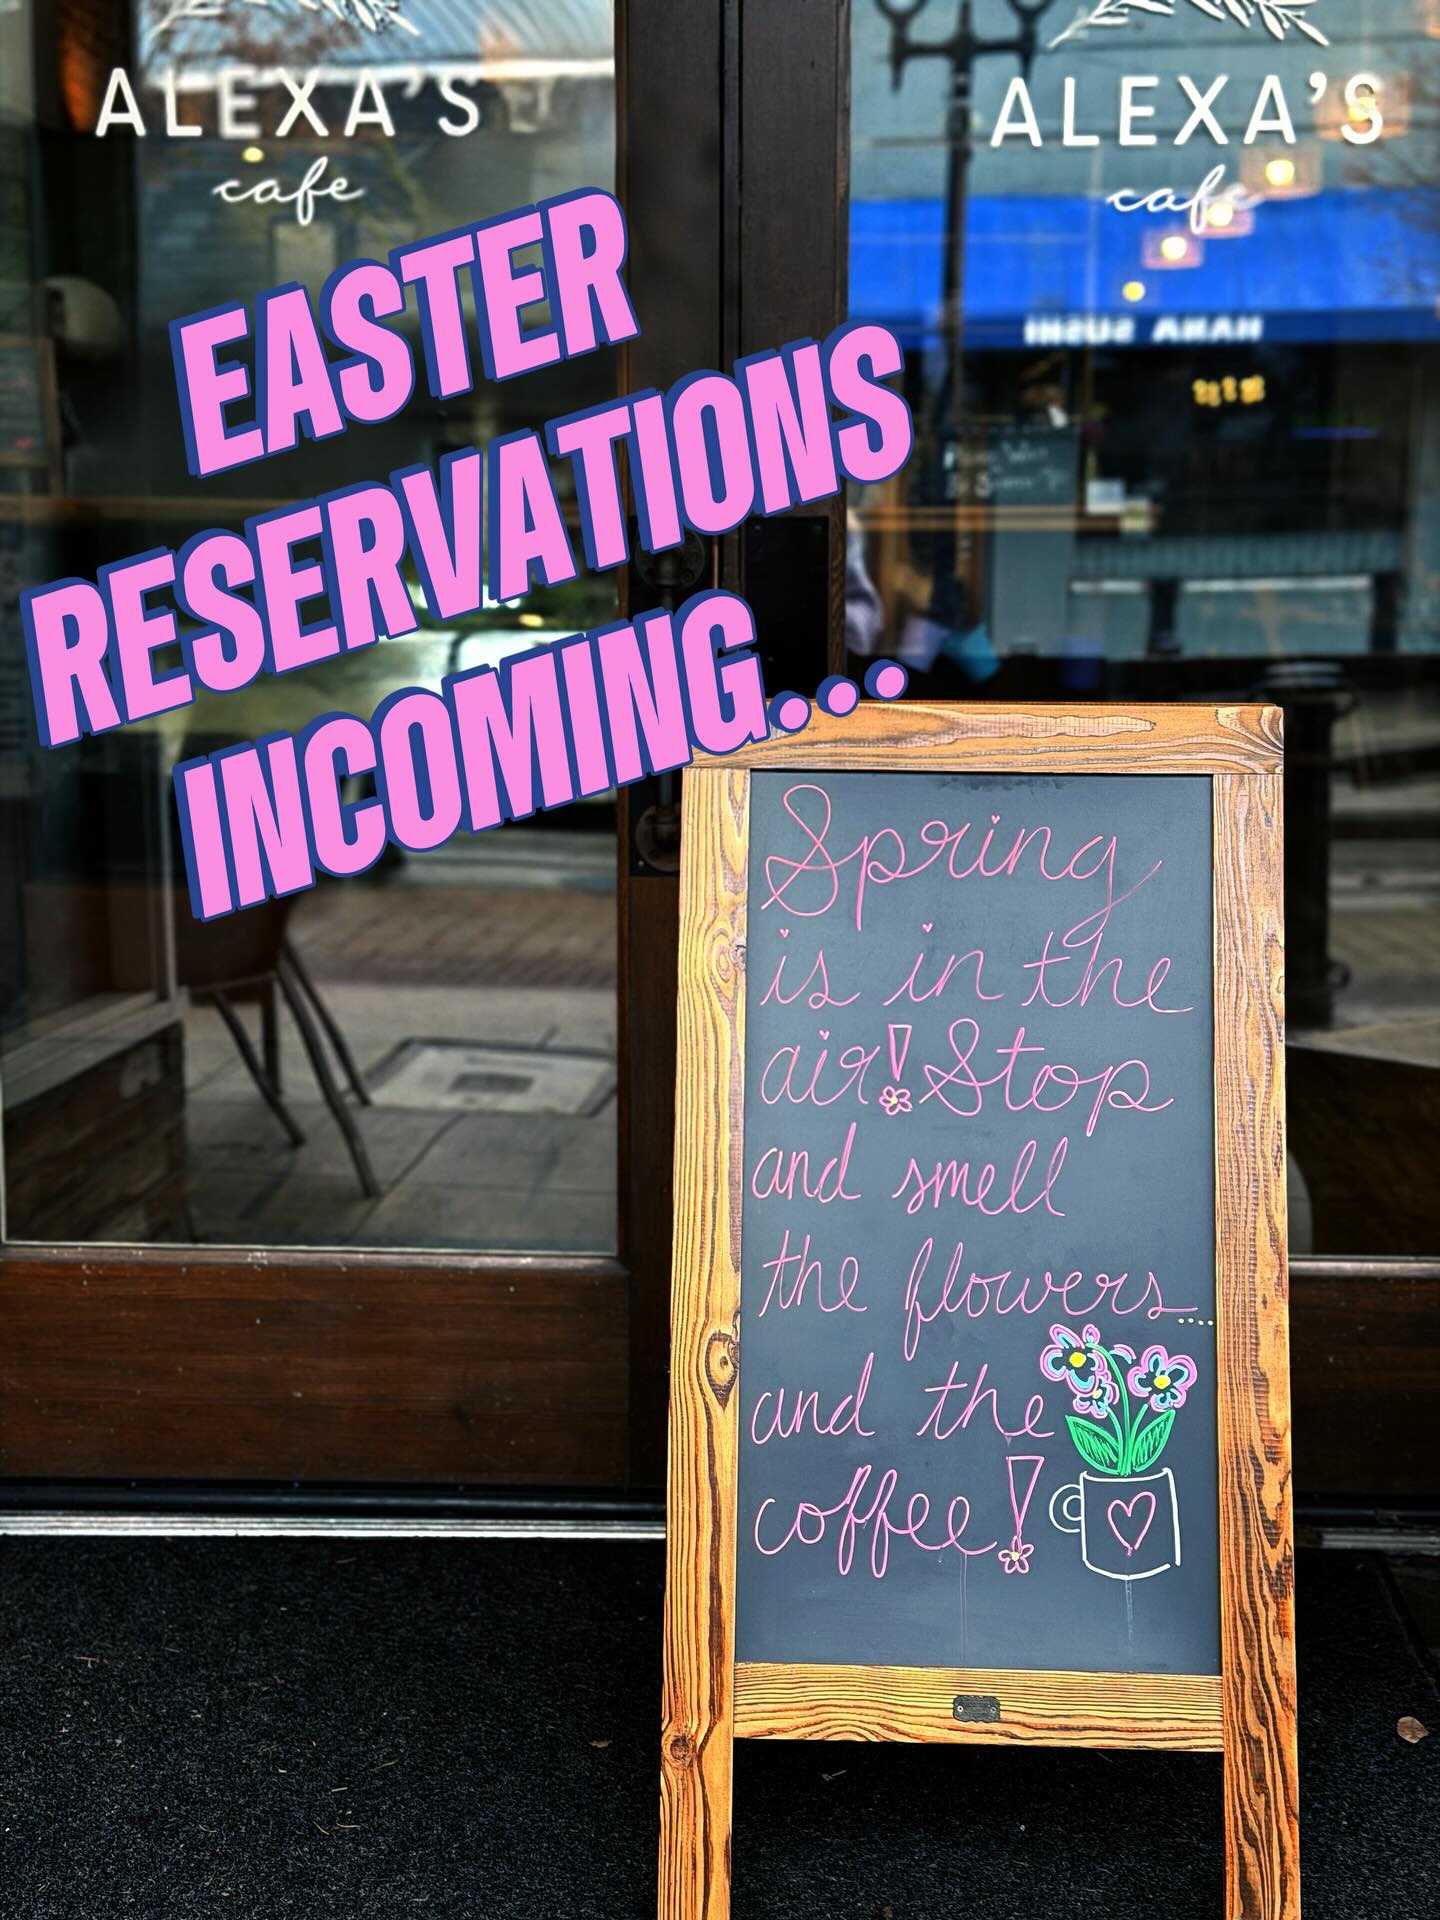 ALEXA'S
cafe
ALEXA'S
cafe
EASTER
RESERVATIONS
INCOMING...
HANA SUSHI
Spring
is in the
air! Stop
and smell
the flowers....
and the
coffee!